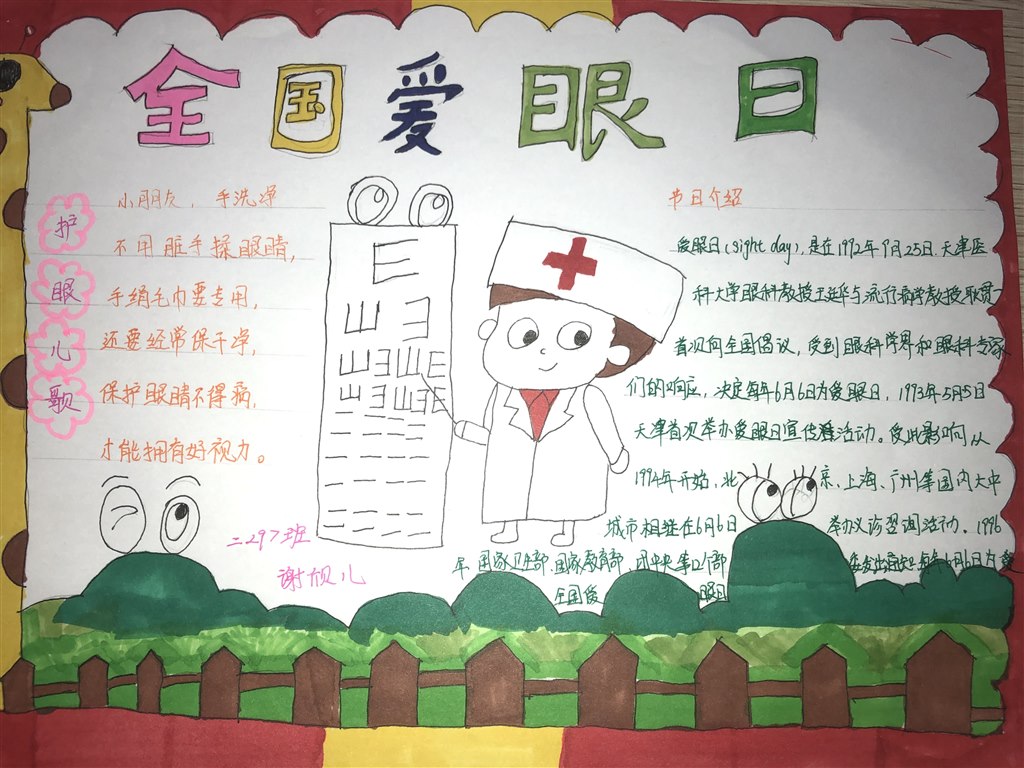 全国爱眼日
护眼儿歌
小朋友，手洗净
不用脏手揉眼睛，
手绢毛巾要专用，
还要经常保干净，
保护眼睛不得病，
才能拥有好视力。
二297班
谢 儿
节日介绍
爱眼日(sight day)，是在1992年9月25日.天津医
科大学眼科教授王延华与流行病学教授耿贯一
首次向全国倡议，受到眼科学界和眼科专家
们的响应，决定每年6月6日为爱眼日，1993年5月5日
天津首次举办爱眼日宣传活动。受此影响从
1994年开始，北京、上海、广州等国内大中
城市相继在6月6日 举办义诊 活动。1996
年 国家卫生部.国家教育部 团中央等12部
委发出通知.每年6月6日为
全国爱眼日